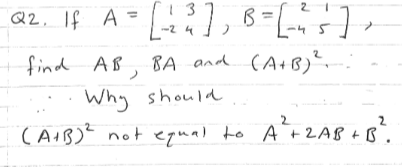 Q2. If A = [1 3; -2 4], B = [2 1; -4 5],
find AB, BA and (A+B)².
Why should
(A+B)² not equal to A² + 2AB + B².